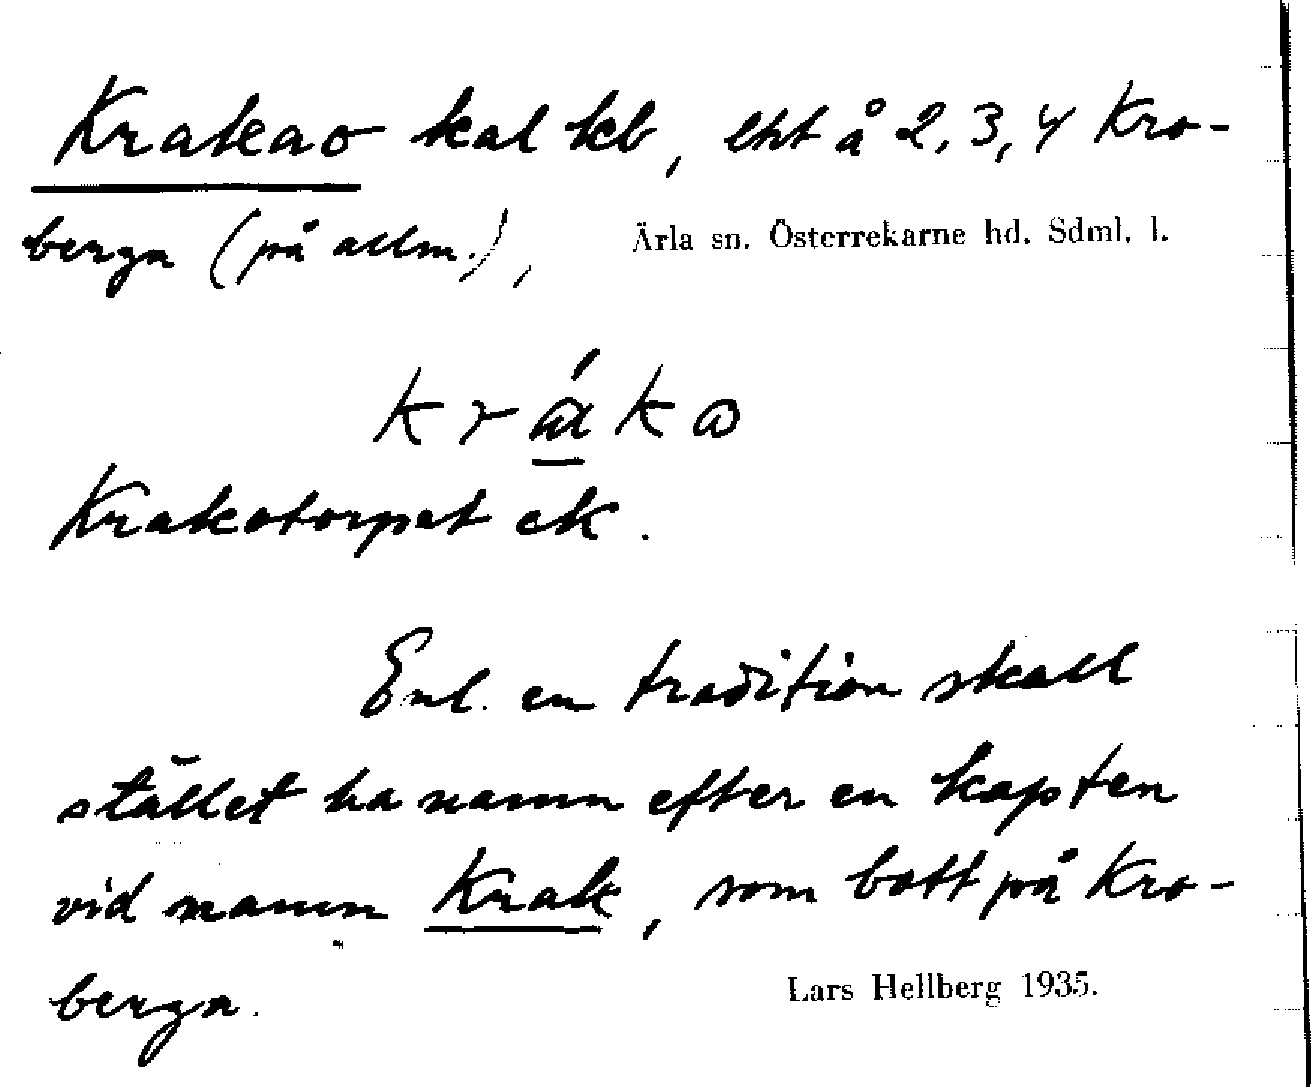 Krakao kal kb, lht å 2, 3, 4 Kro-
berga (på allm.), Ärla sn. Österrekarne hd. Sdml. l.
kráko
Krakotorpet ek.
Enl. en tradition skall
stället ha namn efter en kapten
vid namn Krak, som bott på Kro-
berga. Lars Hellberg 1935.